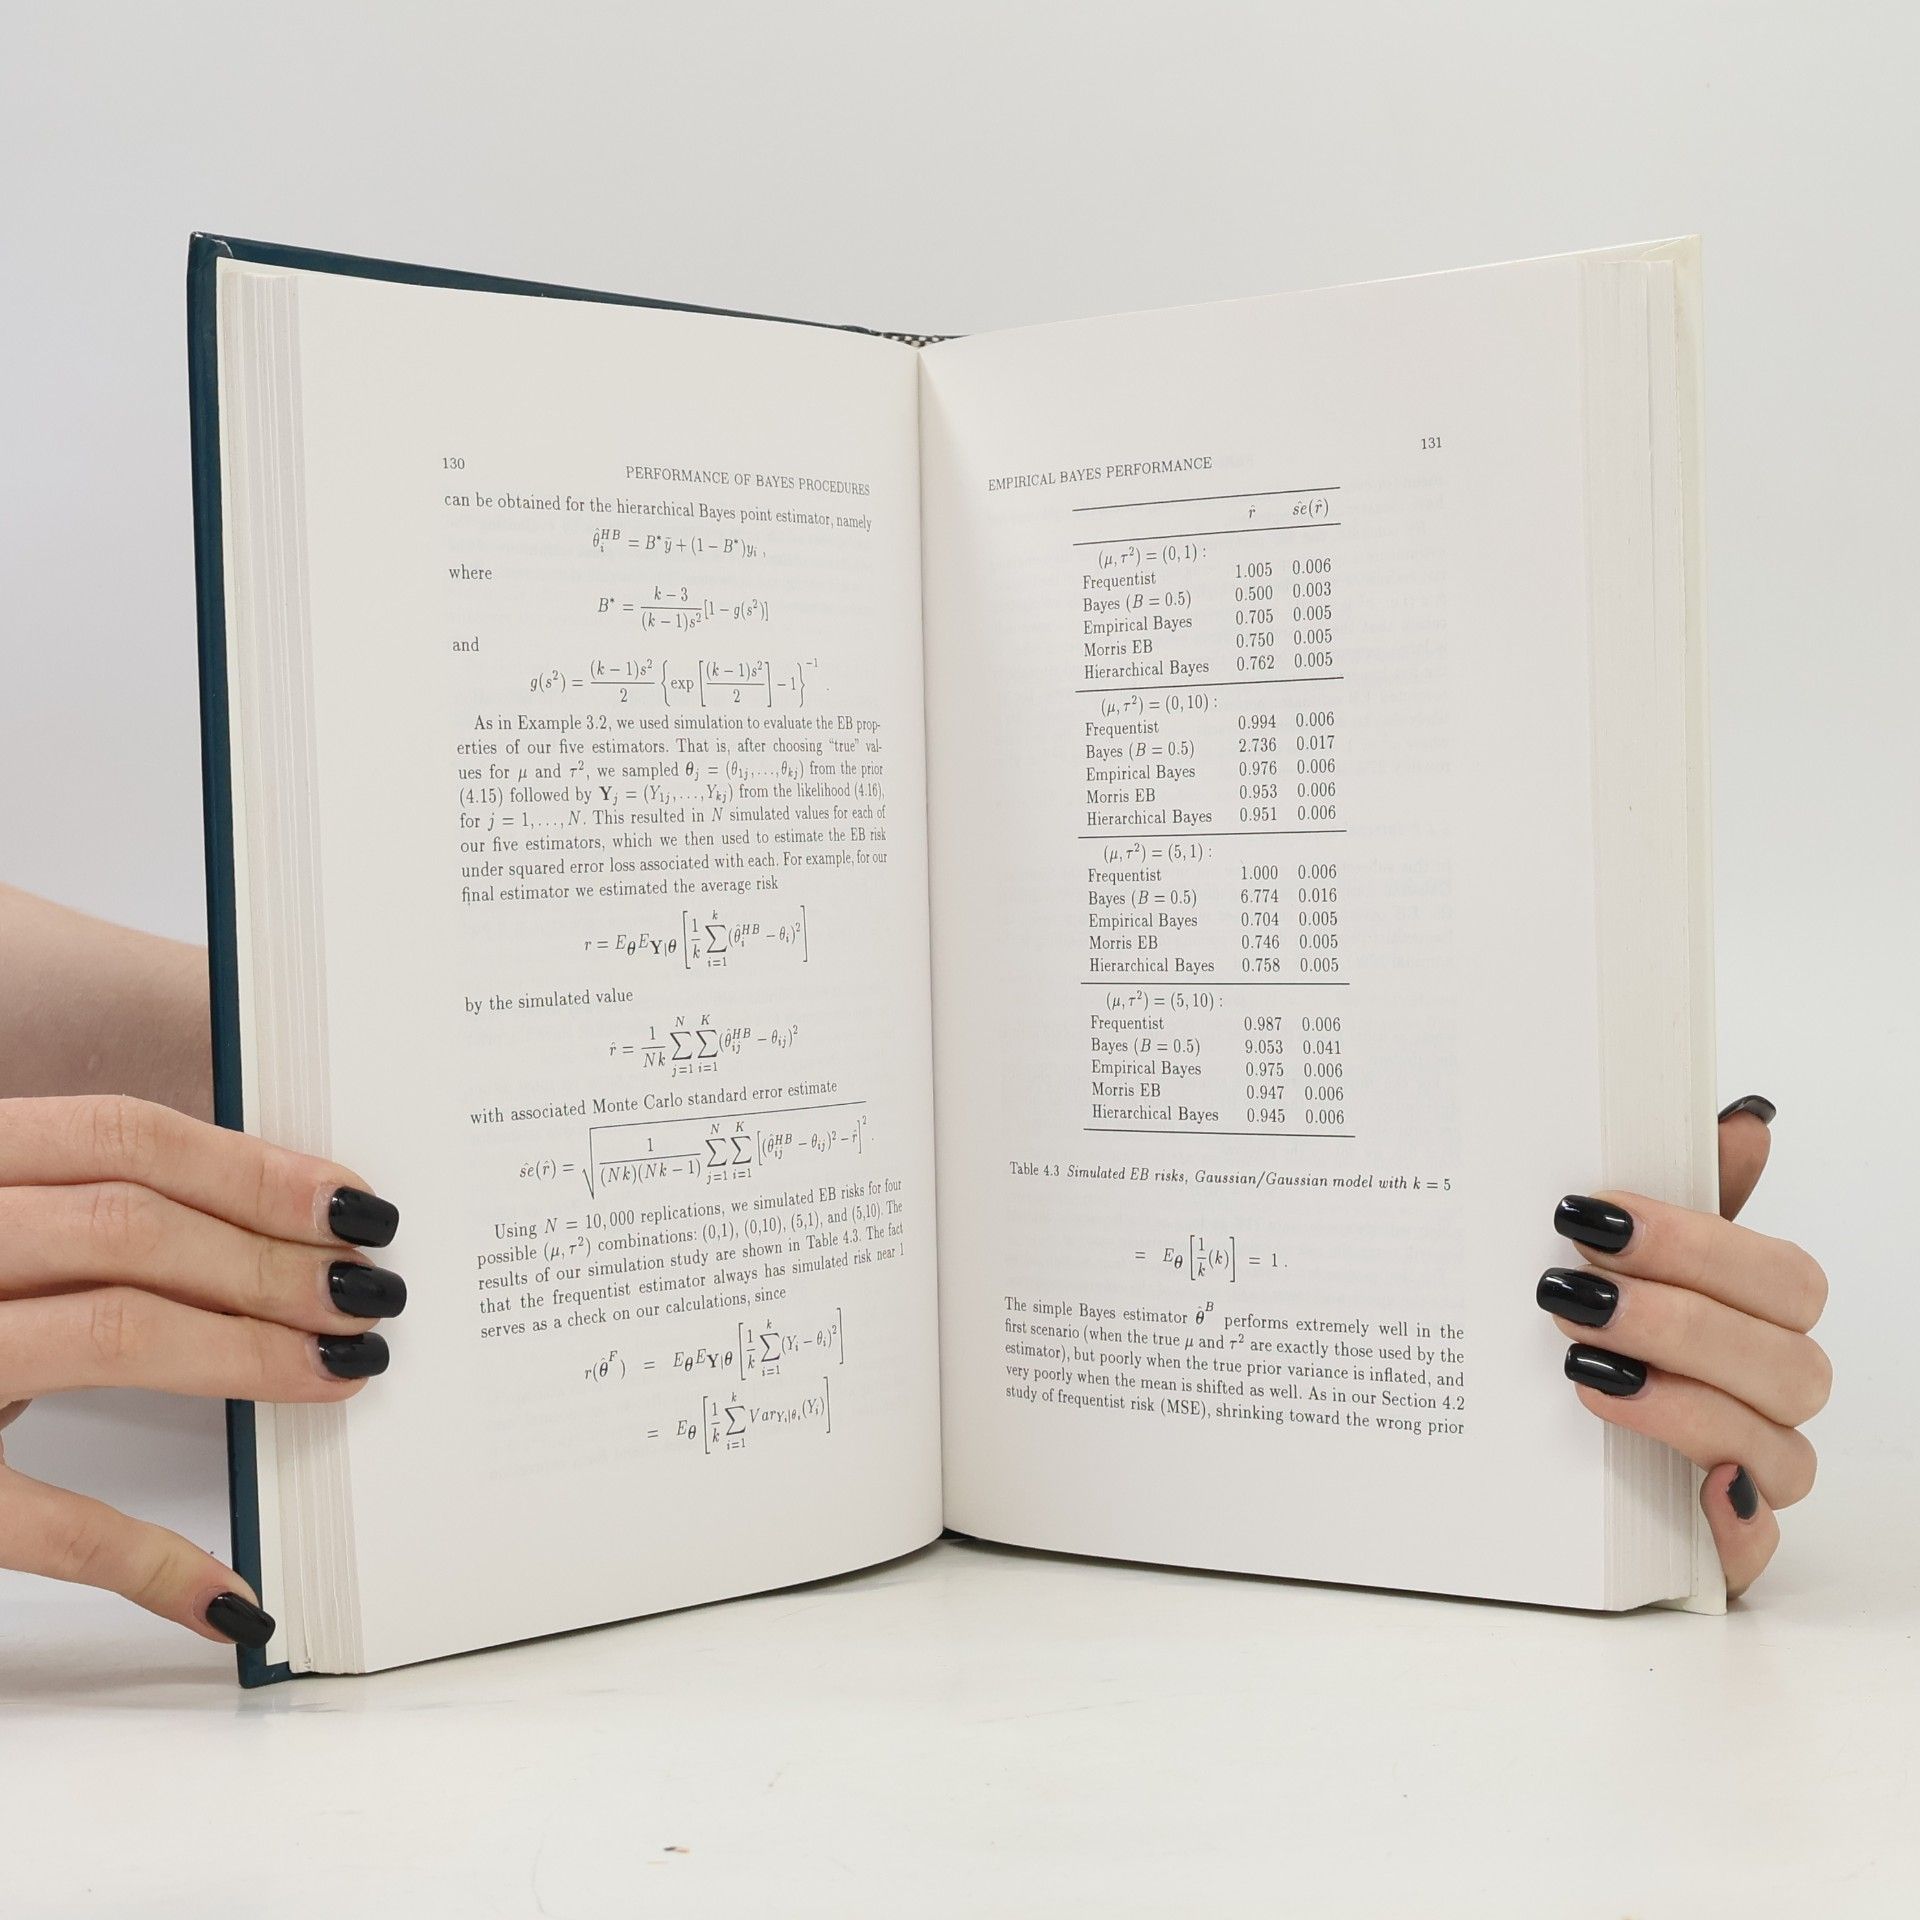 130
PERFORMANCE OF BAYES PROCEDURES
can be obtained for the hierarchical Bayes point estimator, namely
θ̂ᵢᴴᴮ = B*ȳ + (1 − B*)yᵢ ,
where
B* = (k − 3)/((k − 1)s²) [1 − g(s²)]
and
g(s²) = ((k − 1)s²)/2 {exp [((k − 1)s²)/2] − 1}⁻¹ .
As in Example 3.2, we used simulation to evaluate the EB prop-
erties of our five estimators. That is, after choosing “true” val-
ues for μ and τ², we sampled θⱼ = (θ₁ⱼ, . . . , θₖⱼ) from the prior
(4.15) followed by Yⱼ = (Y₁ⱼ, . . . , Yₖⱼ) from the likelihood (4.16),
for j = 1, . . . , N. This resulted in N simulated values for each of
our five estimators, which we then used to estimate the EB risk
under squared error loss associated with each. For example, for our
final estimator we estimated the average risk
r = E_θ E_{Y|θ} [1/k ∑_{i=1}^{k} (θ̂ᵢᴴᴮ − θᵢ)²]
by the simulated value
r̂ = 1/(Nk) ∑_{j=1}^{N} ∑_{i=1}^{K} (θ̂ᵢⱼᴴᴮ − θᵢⱼ)²
with associated Monte Carlo standard error estimate
ŝe(r̂) = √(1/((Nk)(Nk − 1)) ∑_{j=1}^{N} ∑_{i=1}^{K} [(θ̂ᵢⱼᴴᴮ − θᵢⱼ)² − r̂]²) .
Using N = 10,000 replications, we simulated EB risks for four
possible (μ, τ²) combinations: (0,1), (0,10), (5,1), and (5,10). The
results of our simulation study are shown in Table 4.3. The fact
that the frequentist estimator always has simulated risk near 1
serves as a check on our calculations, since
r(θ̂ᶠ) = E_θ E_{Y|θ} [1/k ∑_{i=1}^{k} (Yᵢ − θᵢ)²]
= E_θ [1/k ∑_{i=1}^{k} Var_{Yᵢ|θᵢ}(Yᵢ)]
EMPIRICAL BAYES PERFORMANCE
131
r̂ ŝe(r̂)
(μ, τ²) = (0, 1) :
Frequentist 1.005 0.006
Bayes (B = 0.5) 0.500 0.003
Empirical Bayes 0.705 0.005
Morris EB 0.750 0.005
Hierarchical Bayes 0.762 0.005
(μ, τ²) = (0, 10) :
Frequentist 0.994 0.006
Bayes (B = 0.5) 2.736 0.017
Empirical Bayes 0.976 0.006
Morris EB 0.953 0.006
Hierarchical Bayes 0.951 0.006
(μ, τ²) = (5, 1) :
Frequentist 1.000 0.006
Bayes (B = 0.5) 6.774 0.016
Empirical Bayes 0.704 0.005
Morris EB 0.746 0.005
Hierarchical Bayes 0.758 0.005
(μ, τ²) = (5, 10) :
Frequentist 0.987 0.006
Bayes (B = 0.5) 9.053 0.041
Empirical Bayes 0.975 0.006
Morris EB 0.947 0.006
Hierarchical Bayes 0.945 0.006
Table 4.3 Simulated EB risks, Gaussian/Gaussian model with k = 5
= E_θ [1/k (k)] = 1 .
The simple Bayes estimator θ̂ᴮ performs extremely well in the
first scenario (when the true μ and τ² are exactly those used by the
estimator), but poorly when the true prior variance is inflated, and
very poorly when the mean is shifted as well. As in our Section 4.2
study of frequentist risk (MSE), shrinking toward the wrong prior